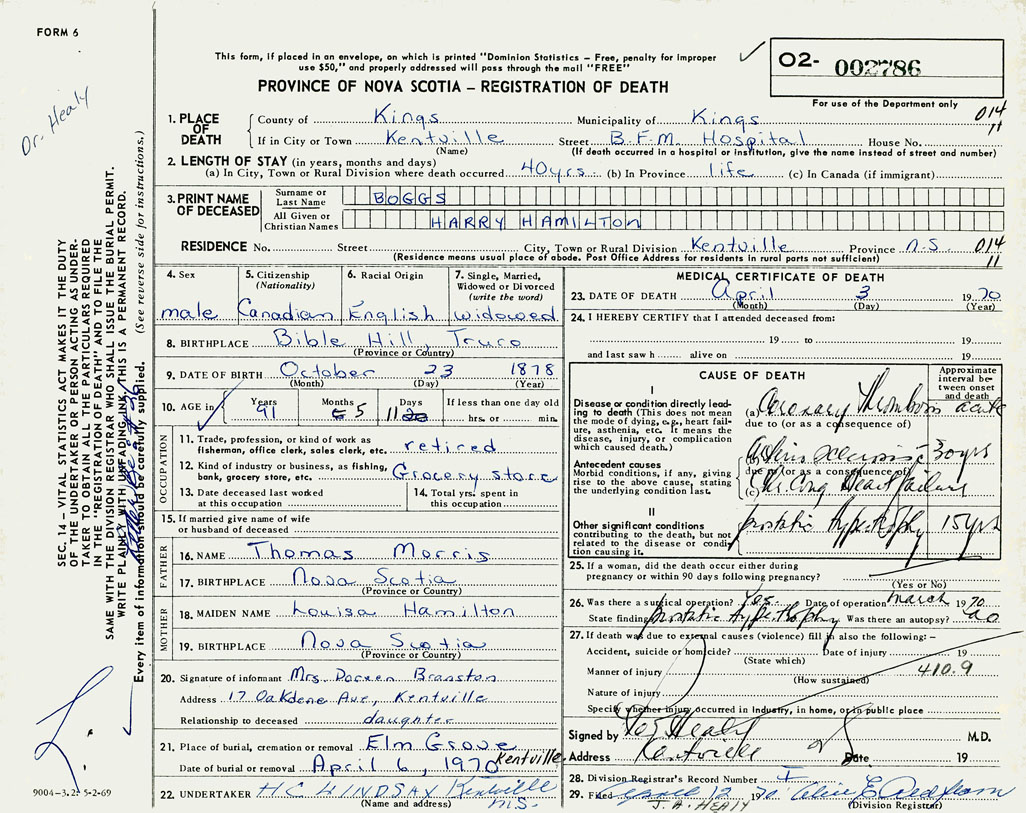 FORM 6
Dr. Healy
This form, if placed in an envelope, on which is printed "Dominion Statistics – Free, penalty for improper
use $50," and properly addressed will pass through the mail "FREE"
O2- 002786
For use of the Department only
PROVINCE OF NOVA SCOTIA – REGISTRATION OF DEATH
014
11
1. PLACE OF DEATH { County of Kings Municipality of Kings
If in City or Town Kentville Street B.F.M. Hospital House No.
(Name) (If death occurred in a hospital or institution, give the name instead of street and number)
2. LENGTH OF STAY (in years, months and days)
(a) In City, Town or Rural Division where death occurred 40yrs. (b) In Province life (c) In Canada (if immigrant)
3. PRINT NAME OF DECEASED { Surname or Last Name BOGGS
All Given or Christian Names HARRY HAMILTON
RESIDENCE No. Street City, Town or Rural Division Kentville Province N.S. 014
11
(Residence means usual place of abode. Post Office Address for residents in rural parts not sufficient)
4. Sex 5. Citizenship (Nationality) 6. Racial Origin 7. Single, Married, Widowed or Divorced (write the word)
male Canadian English widowed
8. BIRTHPLACE Bible Hill, Truro
(Province or Country)
9. DATE OF BIRTH October 23 1878
(Month) (Day) (Year)
10. AGE in { Years Months Days If less than one day old
91 5 11 hrs. or min.
OCCUPATION
11. Trade, profession, or kind of work as
fisherman, office clerk, sales clerk, etc. retired
12. Kind of industry or business, as fishing,
bank, grocery store, etc. Grocery store
13. Date deceased last worked
at this occupation
14. Total yrs. spent in
this occupation
15. If married give name of wife
or husband of deceased
FATHER
16. NAME Thomas Morris
17. BIRTHPLACE Nova Scotia
(Province or Country)
MOTHER
18. MAIDEN NAME Louisa Hamilton
19. BIRTHPLACE Nova Scotia
(Province or Country)
20. Signature of informant Mrs. Doreen Branston
Address 17 Oakdene Ave, Kentville
Relationship to deceased daughter
21. Place of burial, cremation or removal Elm Grove
Kentville
Date of burial or removal April 6, 1970
22. UNDERTAKER H.C. LINDSAY Kentville
N.S.
(Name and address)
MEDICAL CERTIFICATE OF DEATH
23. DATE OF DEATH April 3 1970
(Month) (Day) (Year)
24. I HEREBY CERTIFY that I attended deceased from:
19 to 19
and last saw h alive on 19
CAUSE OF DEATH
Approximate interval between onset and death
I
Disease or condition directly leading to death (This does not mean the mode of dying, e.g., heart failure, asthenia, etc. It means the disease, injury, or complication which caused death.)
(a) Coronary Thrombosis acute
due to (or as a consequence of)
Antecedent causes
Morbid conditions, if any, giving rise to the above cause, stating the underlying condition last.
30 yrs
due to (or as a consequence of)
(c) Heart failure
II
Other significant conditions
contributing to the death, but not related to the disease or condition causing it.
prostatic hypertrophy 15 yrs
25. If a woman, did the death occur either during
pregnancy or within 90 days following pregnancy?
(Yes or No)
26. Was there a surgical operation? Yes Date of operation March 1970
State finding prostatic hypertrophy Was there an autopsy? no
27. If death was due to external causes (violence) fill in also the following: –
Accident, suicide or homicide? Date of injury 19
(State which)
Manner of injury 410.9
(How sustained)
Nature of injury
Specify whether injury occurred in industry, in home, or in public place
Signed by Healy M.D.
Address Kentville Date 19
28. Division Registrar's Record Number
29. Filed April 12 1970
J.A. HEALY
(Division Registrar)
SEC. 14 – VITAL STATISTICS ACT MAKES IT THE DUTY
OF THE UNDERTAKER OR PERSON ACTING AS UNDER-
TAKER TO OBTAIN ALL THE PARTICULARS REQUIRED
IN THE "REGISTRATION OF DEATH" AND TO FILE THE
SAME WITH THE DIVISION REGISTRAR WHO SHALL ISSUE THE BURIAL PERMIT.
WRITE PLAINLY WITH UNFADING INK. THIS IS A PERMANENT RECORD.
Every item of information should be carefully supplied. (See reverse side for instructions.)
9004-3.25: 5-2-69